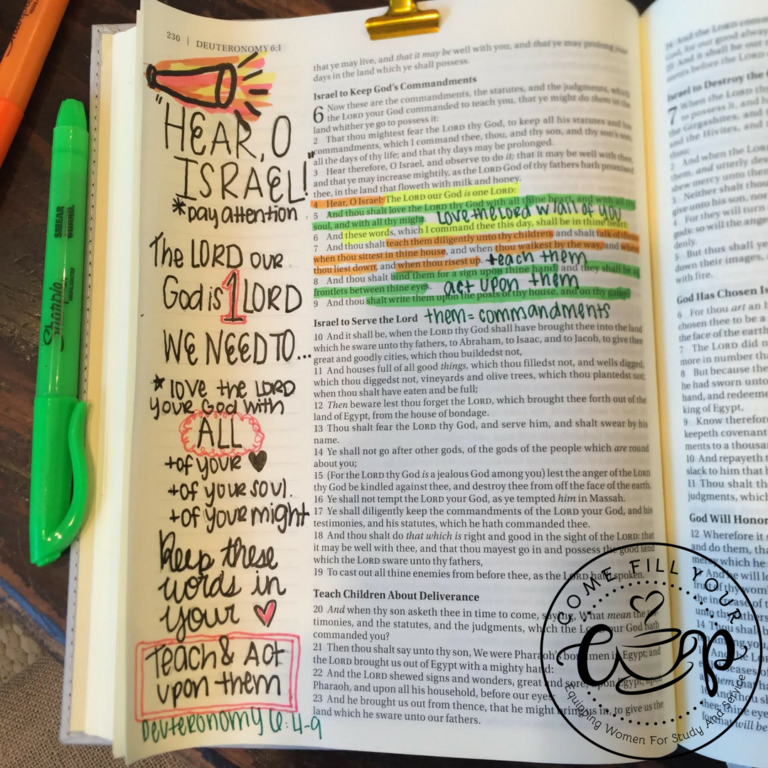 230 | DEUTERONOMY 6:1
"HEAR, O
ISRAEL!"
*pay attention
The LORD our
God is 1 LORD
WE NEED TO...
* love the LORD
your God with
ALL
+ of your ♥
+ of your soul.
+ of your might
Keep these
words in
your ♥
Teach & Act
upon them
Deuteronomy 6:4-9
that ye may live, and that it may be well with you, and that ye may prolong your
days in the land which ye shall possess.
Israel to Keep God's Commandments
6 Now these are the commandments, the statutes, and the judgments, which
the LORD your God commanded to teach you, that ye might do them in the
land whither ye go to possess it:
2 That thou mightest fear the LORD thy God, to keep all his statutes and his
commandments, which I command thee, thou, and thy son, and thy son's son,
all the days of thy life; and that thy days may be prolonged.
3 Hear therefore, O Israel, and observe to do it; that it may be well with thee,
and that ye may increase mightily, as the LORD God of thy fathers hath promised
thee, in the land that floweth with milk and honey.
4 Hear, O Israel: The LORD our God is one LORD:
5 And thou shalt love the LORD thy God with all thine heart, and with all thy
soul, and with all thy might.
Love the Lord w/all of you
6 And these words, which I command thee this day, shall be in thine heart:
7 And thou shalt teach them diligently unto thy children, and shalt talk of them
when thou sittest in thine house, and when thou walkest by the way, and when
thou liest down, and when thou risest up.
teach them
8 And thou shalt bind them for a sign upon thine hand, and they shall be as
frontlets between thine eyes.
act upon them
9 And thou shalt write them upon the posts of thy house, and on thy gates.
them = commandments
Israel to Serve the Lord
10 And it shall be, when the LORD thy God shall have brought thee into the land
which he sware unto thy fathers, to Abraham, to Isaac, and to Jacob, to give thee
great and goodly cities, which thou buildedst not,
11 And houses full of all good things, which thou filledst not, and wells digged,
which thou diggedst not, vineyards and olive trees, which thou plantedst not;
when thou shalt have eaten and be full;
12 Then beware lest thou forget the LORD, which brought thee forth out of the
land of Egypt, from the house of bondage.
13 Thou shalt fear the LORD thy God, and serve him, and shalt swear by his
name.
14 Ye shall not go after other gods, of the gods of the people which are round
about you;
15 (For the LORD thy God is a jealous God among you) lest the anger of the LORD
thy God be kindled against thee, and destroy thee from off the face of the earth.
16 Ye shall not tempt the LORD your God, as ye tempted him in Massah.
17 Ye shall diligently keep the commandments of the LORD your God, and his
testimonies, and his statutes, which he hath commanded thee.
18 And thou shalt do that which is right and good in the sight of the LORD: that
it may be well with thee, and that thou mayest go in and possess the good land
which the LORD sware unto thy fathers,
19 To cast out all thine enemies from before thee, as the LORD hath spoken.
Teach Children About Deliverance
20 And when thy son asketh thee in time to come, saying, What mean the tes-
timonies, and the statutes, and the judgments, which the LORD our God hath
commanded you?
21 Then thou shalt say unto thy son, We were Pharaoh's bondmen in Egypt; and
the LORD brought us out of Egypt with a mighty hand:
22 And the LORD shewed signs and wonders, great and sore, upon Egypt, upon
Pharaoh, and upon all his household, before our eyes:
23 And he brought us out from thence, that he might bring us in, to give us the
land which he sware unto our fathers.
Israel to Destroy the
7 When the LORD thy
God Has Chosen Is
6 For thou art an
chosen thee to be a
the face of the earth
7 The LORD did n
more in number tha
8 But because the
he had sworn unto
hand, and redeemed
king of Egypt.
9 Know therefore
keepeth covenant
ments to a thousan
10 And repayeth t
slack to him that h
11 Thou shalt the
judgments, which
God Will Honor
12 Wherefore it s
and do them, tha
Sharpie
SMEAR
GUARD
COME FILL YOUR
cup
Equipping Women For Study And Service